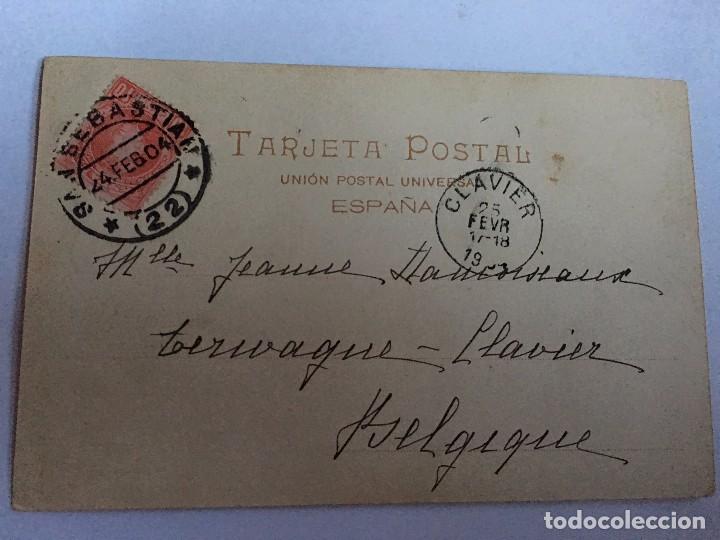 SAN SEBASTIAN
24.FEB.04
(22)
TARJETA POSTAL
UNIÓN POSTAL UNIVERSAL
ESPAÑA
CLAVIER
25
FEVR
17-18
19
Mlle Jeanne
Terwagne - Clavier
Belgique
todocoleccion.net